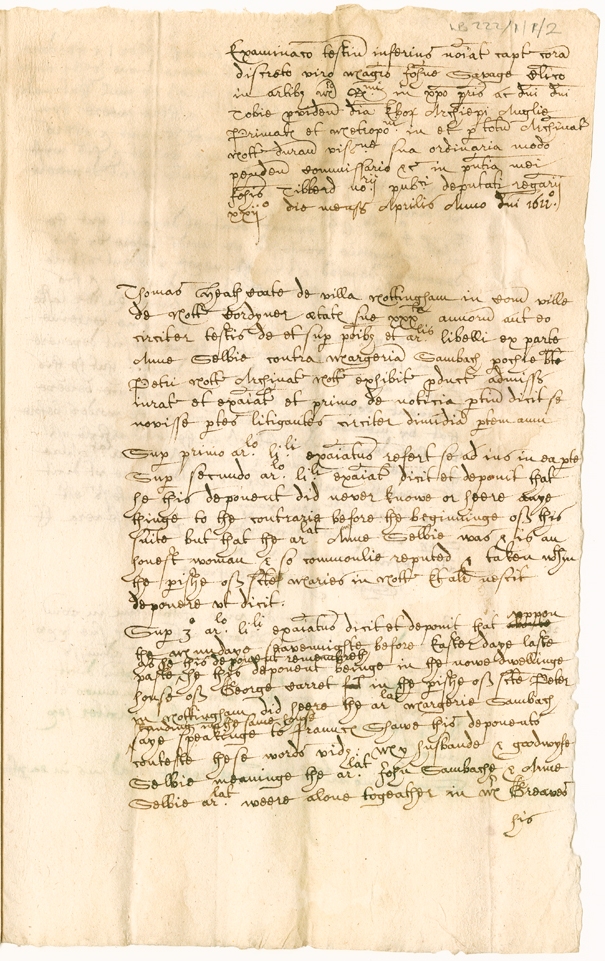 LB 222/1/1/2
Examinaco testiu inferius noiat capt cora
discreto viro magro Johne Savage Clico
in artibz m in xpo pris ac dni dni
Tobie Archiepi Anglie
Primat et metropo in et p totu Archinat
Nott duran sua ordinaria modo
penden Commissario &c in pntia mei
Johis Tibberd norij pubci deputati regarij
xxijo die mensis Aprilis Anno dni 1612o
Thomas Heathcoate de villa Nottingham in Com ville
de Nott Cordyner etatis sue xxx annorum aut eo
circiter testis de et sup pmibz et arlis libelli ex parte
Anne Selbie contra Margeria Sambach pochie bte
Petri Nott Archinat Nott exhibit pduct admiss
iurat et exaiat et primo de noticia ptiu dicit se
novisse ptes litigantes circiter dimidia ptem anni
Sup primo arlo lili exaiatus refert se ad ius in ea pte
Sup secundo arlo lili exaiat dicit et deponit that
he this deponent did never knowe or heere anye
thinge to the contrarie before the beginninge off this
suite but that the arlat Anne Selbie was & is an
honest woman & so commonlie reputed & taken wthin
the pishe off Scte Maries in Nott Et alr nescit
deponere ut dicit.
Sup 3o arlo lili exaiatus dicit et deponit that uppon
the mundaye seavennighte before Easter daye laste
as he this deponent remembreth
paste he this deponent beinge in the nowe dwellinge
house off George Carret in the pishe off Scte Peter
in Nottingham did heere the arlat Margerie Sambach
standinge in the same house
saye speakinge to Frauncis Shawe this deponents
conteste these words vidz. my husbande & goodwyfe
Selbie meaninge the arlat John Sambache & Anne
Selbie arlat weere alone togeather in Mr Greaves
his